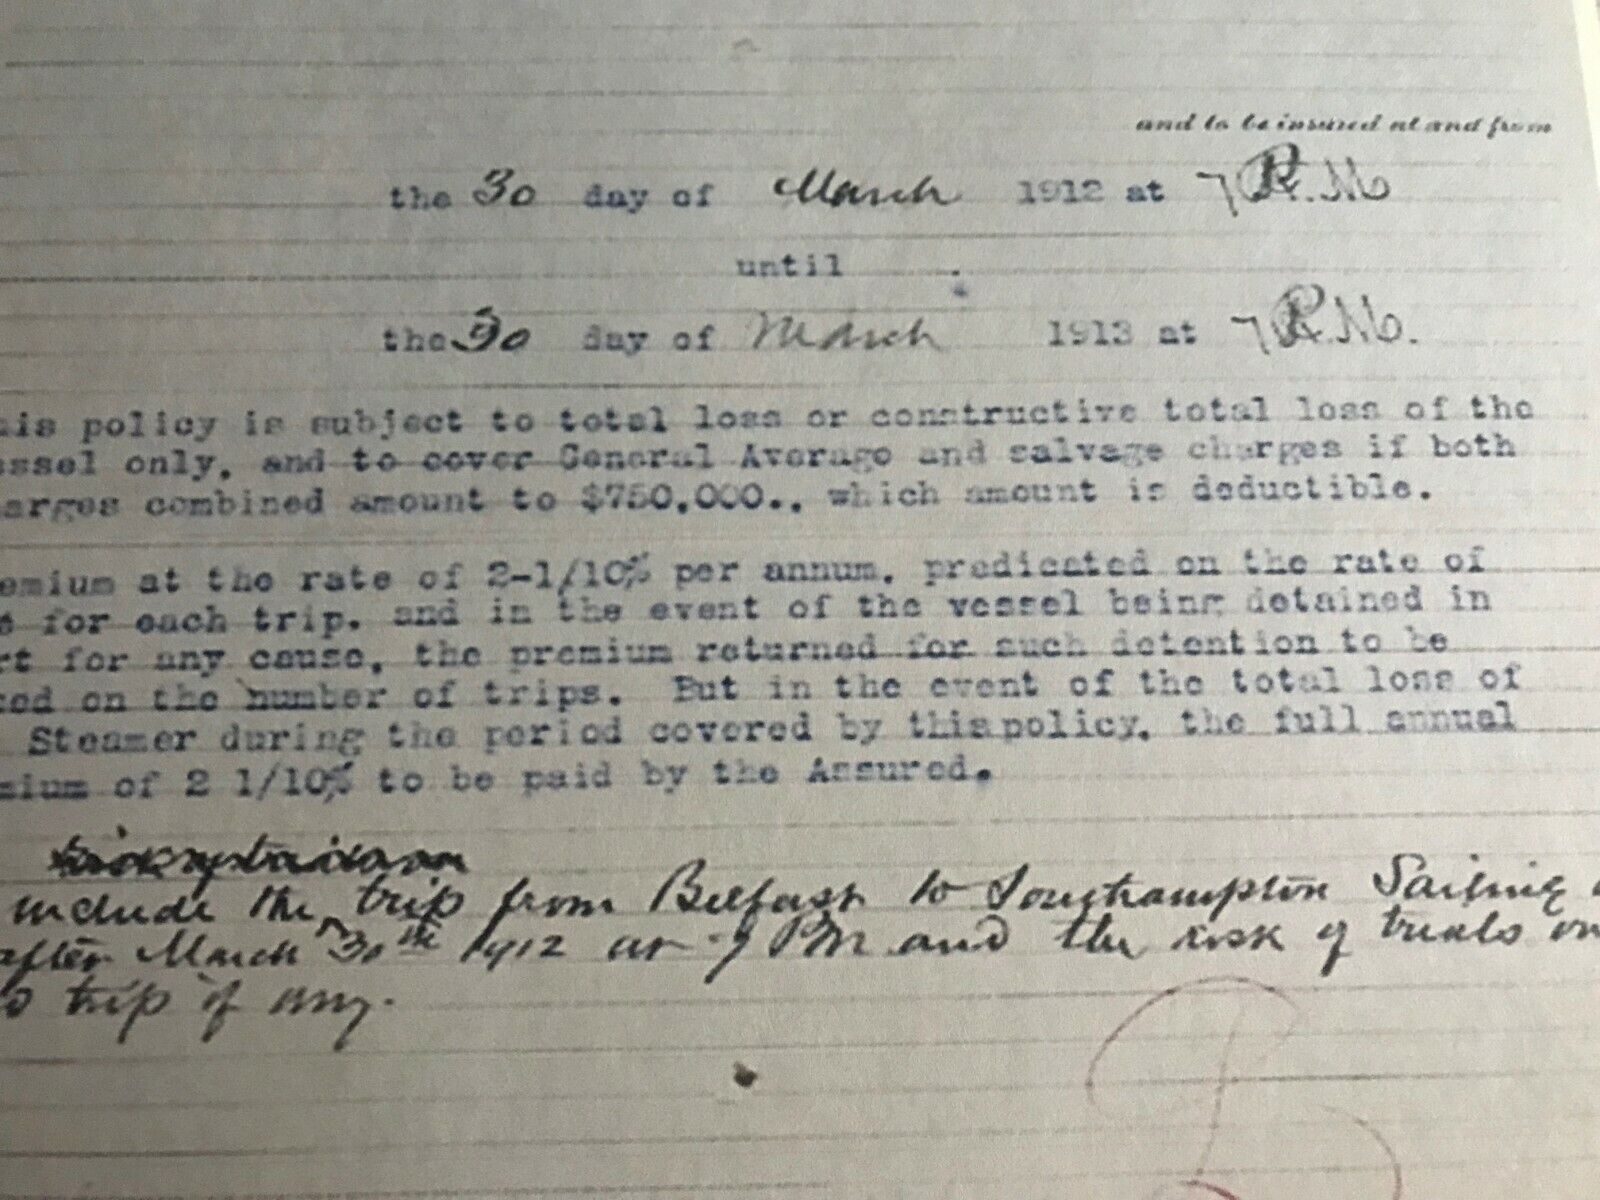 and to be insured at and from
the 30 day of March 1912 at 7 P.M
until
the 30 day of March 1913 at 7 P.M.
is policy is subject to total loss or constructive total loss of the
ssel only, and to cover General Average and salvage charges if both
arges combined amount to $750,000., which amount is deductible.
emium at the rate of 2-1/10% per annum, predicated on the rate of
for each trip, and in the event of the vessel being detained in
rt for any cause, the premium returned for such detention to be
ed on the number of trips. But in the event of the total loss of
Steamer during the period covered by this policy, the full annual
mium of 2 1/10% to be paid by the Assured.
include the trip from Belfast to Southampton Sailing
after March 30th 1912 at 7 PM and the risk of trials on
trip if any.